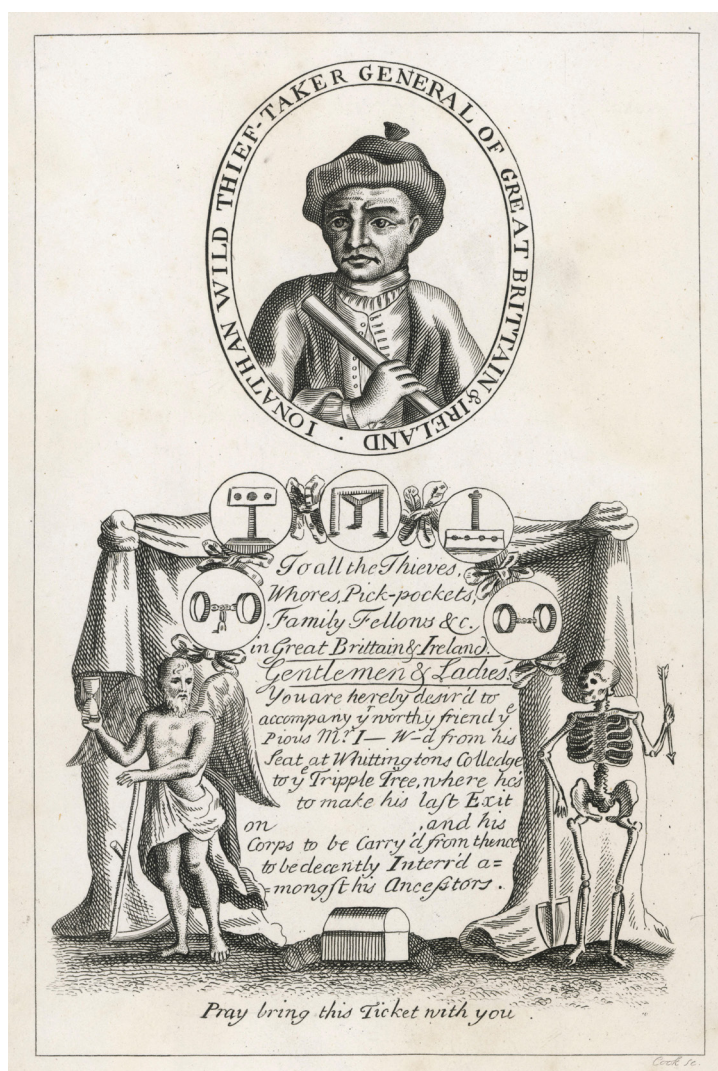 IONATHAN WILD THIEF-TAKER GENERAL OF GREAT BRITTAIN & IRELAND ·
To all the Thieves,
Whores, Pick-pockets,
Family Fellons &c.
in Great Brittain & Ireland.
Gentlemen & Ladies,
You are hereby desir'd to
accompany yr worthy friend ye
Pious Mr. I— W–d from his
Seat at Whittingtons Colledge
to ye Tripple Tree, where he's
to make his last Exit
on , and his
Corps to be Carry'd from thence
to be decently Interr'd a=
=mongst his Ancestors.
Pray bring this Ticket with you.
Cook sc.